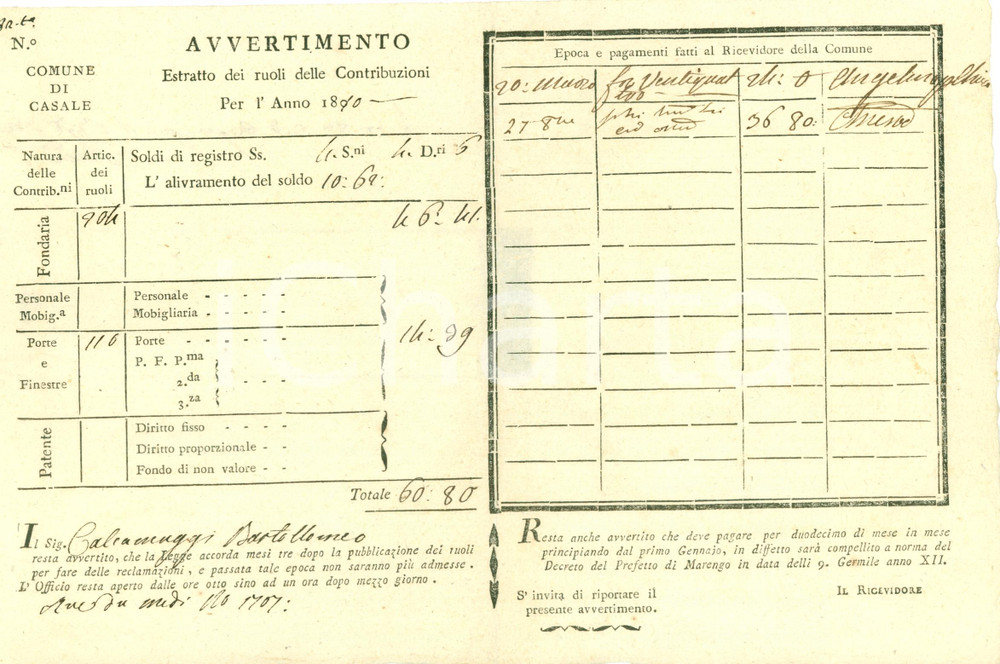 N.º
COMUNE
DI
CASALE
AVVERTIMENTO
Estratto dei ruoli delle Contribuzioni
Per l' Anno 1810
Natura
delle
Contrib.ni
Artic.
dei
ruoli
Soldi di registro Ss. 4. S.ni 4. D.ri 6
L' alivramento del soldo 10: 62:
Fondaria
904
46: 41.
Personale
Mobig.a
Personale - - - - -
Mobigliaria - - - - -
Porte
e
Finestre
110
Porte - - - - - -
P. F. P.ma
2.da - - - -
3.za
14: 39
Patente
Diritto fisso - - - -
Diritto proporzionale - -
Fondo di non valore - -
Totale 60: 80
Il Sig. Bartollomeo
resta avvertito, che la Legge accorda mesi tre dopo la pubblicazione dei ruoli
per fare delle reclamazioni, e passata tale epoca non saranno più admesse.
L' Officio resta aperto dalle ore otto sino ad un ora dopo mezzo giorno.
Epoca e pagamenti fatti al Ricevidore della Comune
20: Marzo 24: 0
27 8bre 36 80:
Resta anche avvertito che deve pagare per duodecimo di mese in mese
principiando dal primo Gennajo, in diffetto sarà compellito a norma del
Decreto del Prefetto di Marengo in data delli 9. Germile anno XII.
S' invita di riportare il
presente avvertimento.
IL RICEVIDORE
iCharta